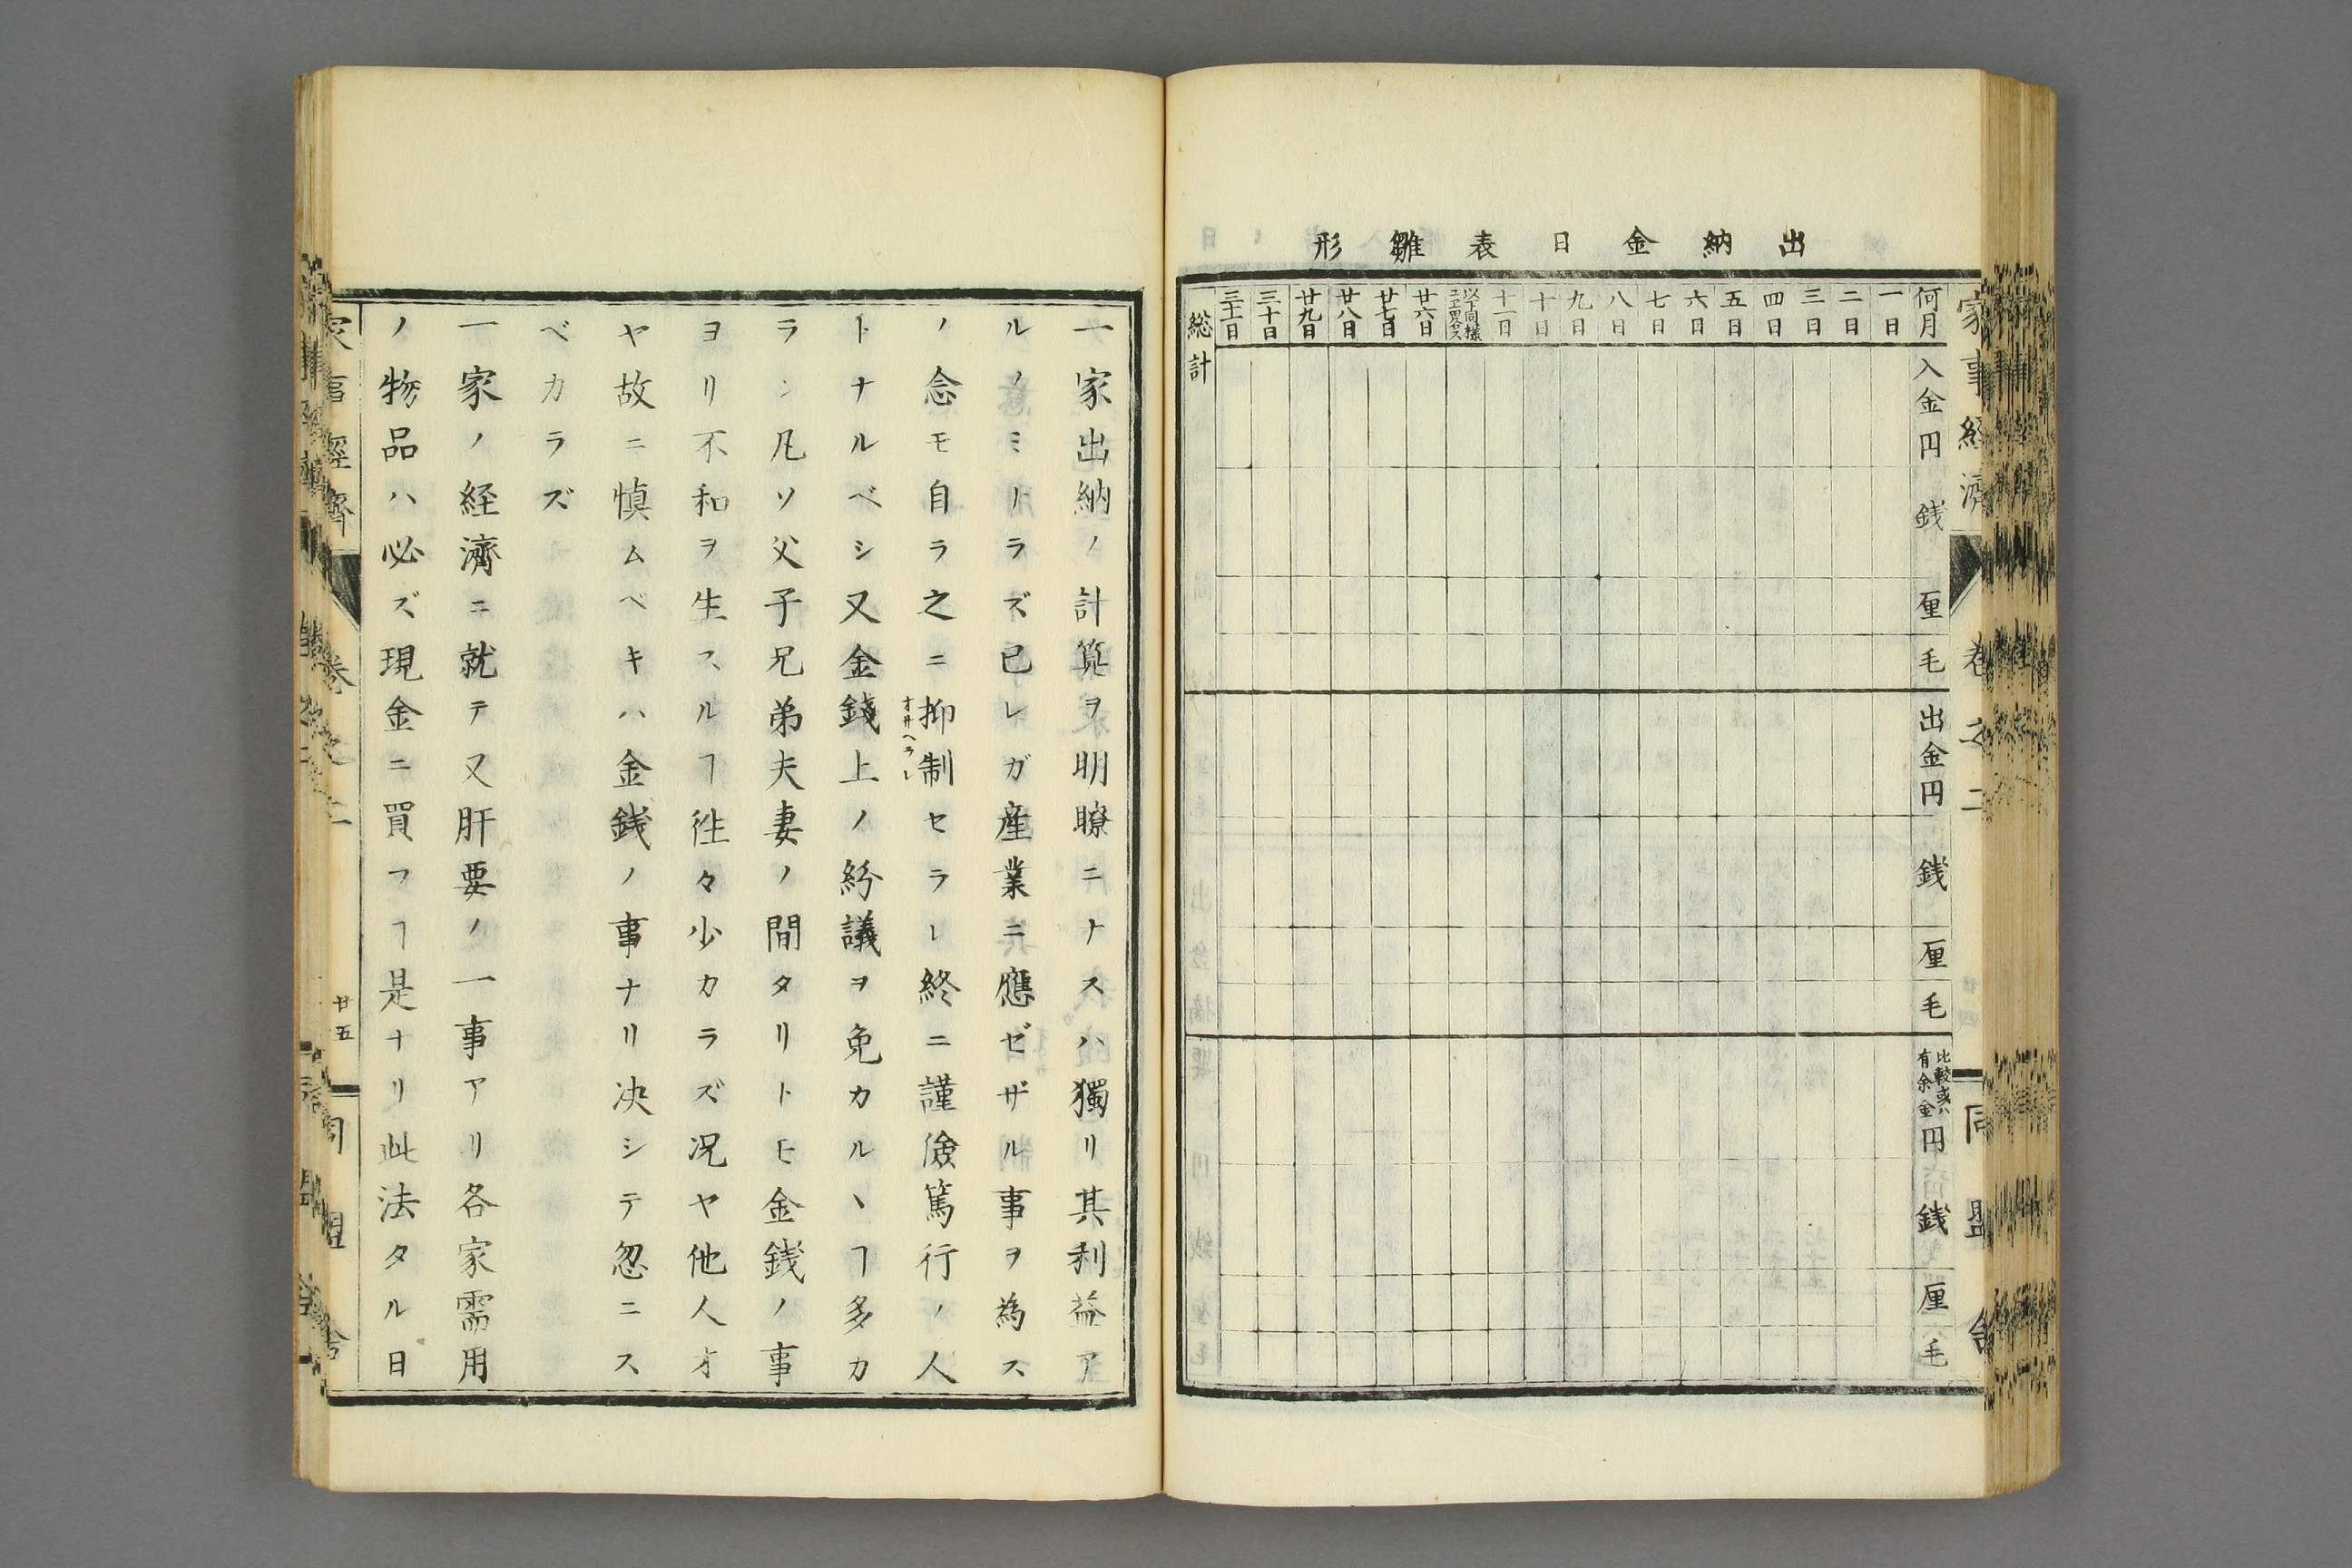 出納金日表雛形
何月 入金円 銭 厘 毛 出金円 銭 厘 毛 比較或ハ有余金円 銭 厘 毛
一日
二日
三日
四日
五日
六日
七日
八日
九日
十日
十一日
以下同様
廿六日
廿七日
廿八日
廿九日
三十日
三十一日
総計
一家出納ノ計算ヲ明瞭ニナスハ獨リ其利益ア
ルノミナラズ已レガ産業ニ應ゼザル事ヲ為ス
ノ念モ自ラ之ニ抑制セラレ終ニ謹儉篤行ノ人
オサヘラレ
トナルベシ又金錢上ノ紛議ヲ免カルヽヿ多カ
ラン凡ソ父子兄弟夫妻ノ間タリトヒ金銭ノ事
ヨリ不和ヲ生スルヿ徃々少カラズ况ヤ他人オ
ヤ故ニ慎ムベキハ金銭ノ事ナリ决シテ忽ニス
ベカラズ
一家ノ経濟ニ就テ又肝要ノ一事アリ各家需用
ノ物品ハ必ズ現金ニ買フヿ是ナリ此法タル日
家事經濟 卷之二 廿五 同盟舎